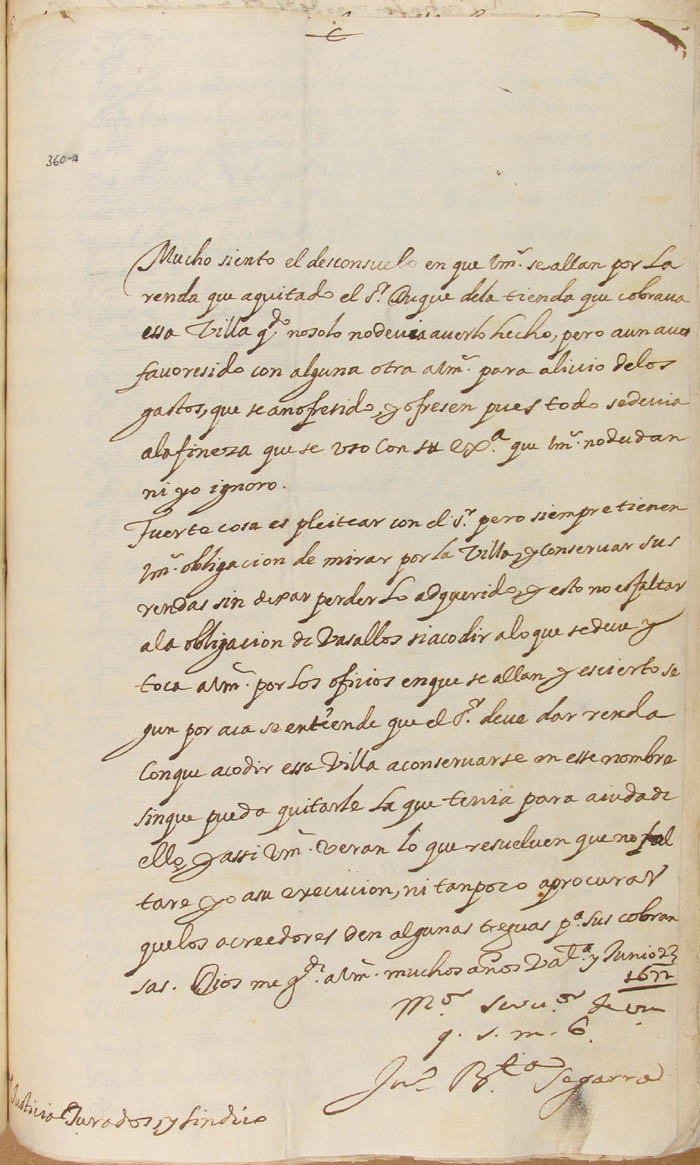 360-4
Mucho siento el desconsuelo en que Vms. se allan por La
renda que a quitado el Sr. Duque de la tienda que cobrava
essa Villa qd. no solo no devia averlo hecho, pero aun aver
favoresido con alguna otra a Vms. para alivio de los
gastos, que se an ofresido, y ofresen pues todo se devia
a la finesa que se uso Con su Exa. que Vms. no dudan
ni yo ignoro.
Fuerte cosa es pleitear con el Sr. pero siempre tienen
Vms. obligacion de mirar por la Villa, y Conservar sus
rendas sin dexar perder Lo adquerido, y esto no es faltar
a la obligacion de Vasallos si acodir a lo que se deve y
toca a Vms. por Los oficios en que se allan y es cierto se
gun por aca se entiende que el Sr. deve dar renda
Con que acodir essa Villa a conservarse en esse nombre
sin que pueda quitarle La que tenia para aiuda de
ello, y assi Vms. veran lo que resuelven que no fal
tare yo a su execucion, ni tanpoco a procurar
que los acreedores den algunas treguas pa. sus cobran
sas. Dios me gde. a Vms. muchos años Vala. y Junio 23
1677
Mor. servor. de Vm
q. s. m. b.
Jua. Bta. Segarra
Justicia Jurados, y Sindico